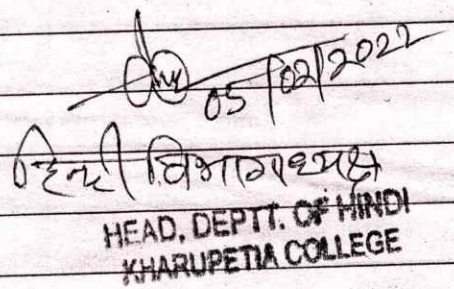 05/02/2022
हिन्दी विभागाध्यक्ष
HEAD, DEPTT. OF HINDI
KHARUPETIA COLLEGE